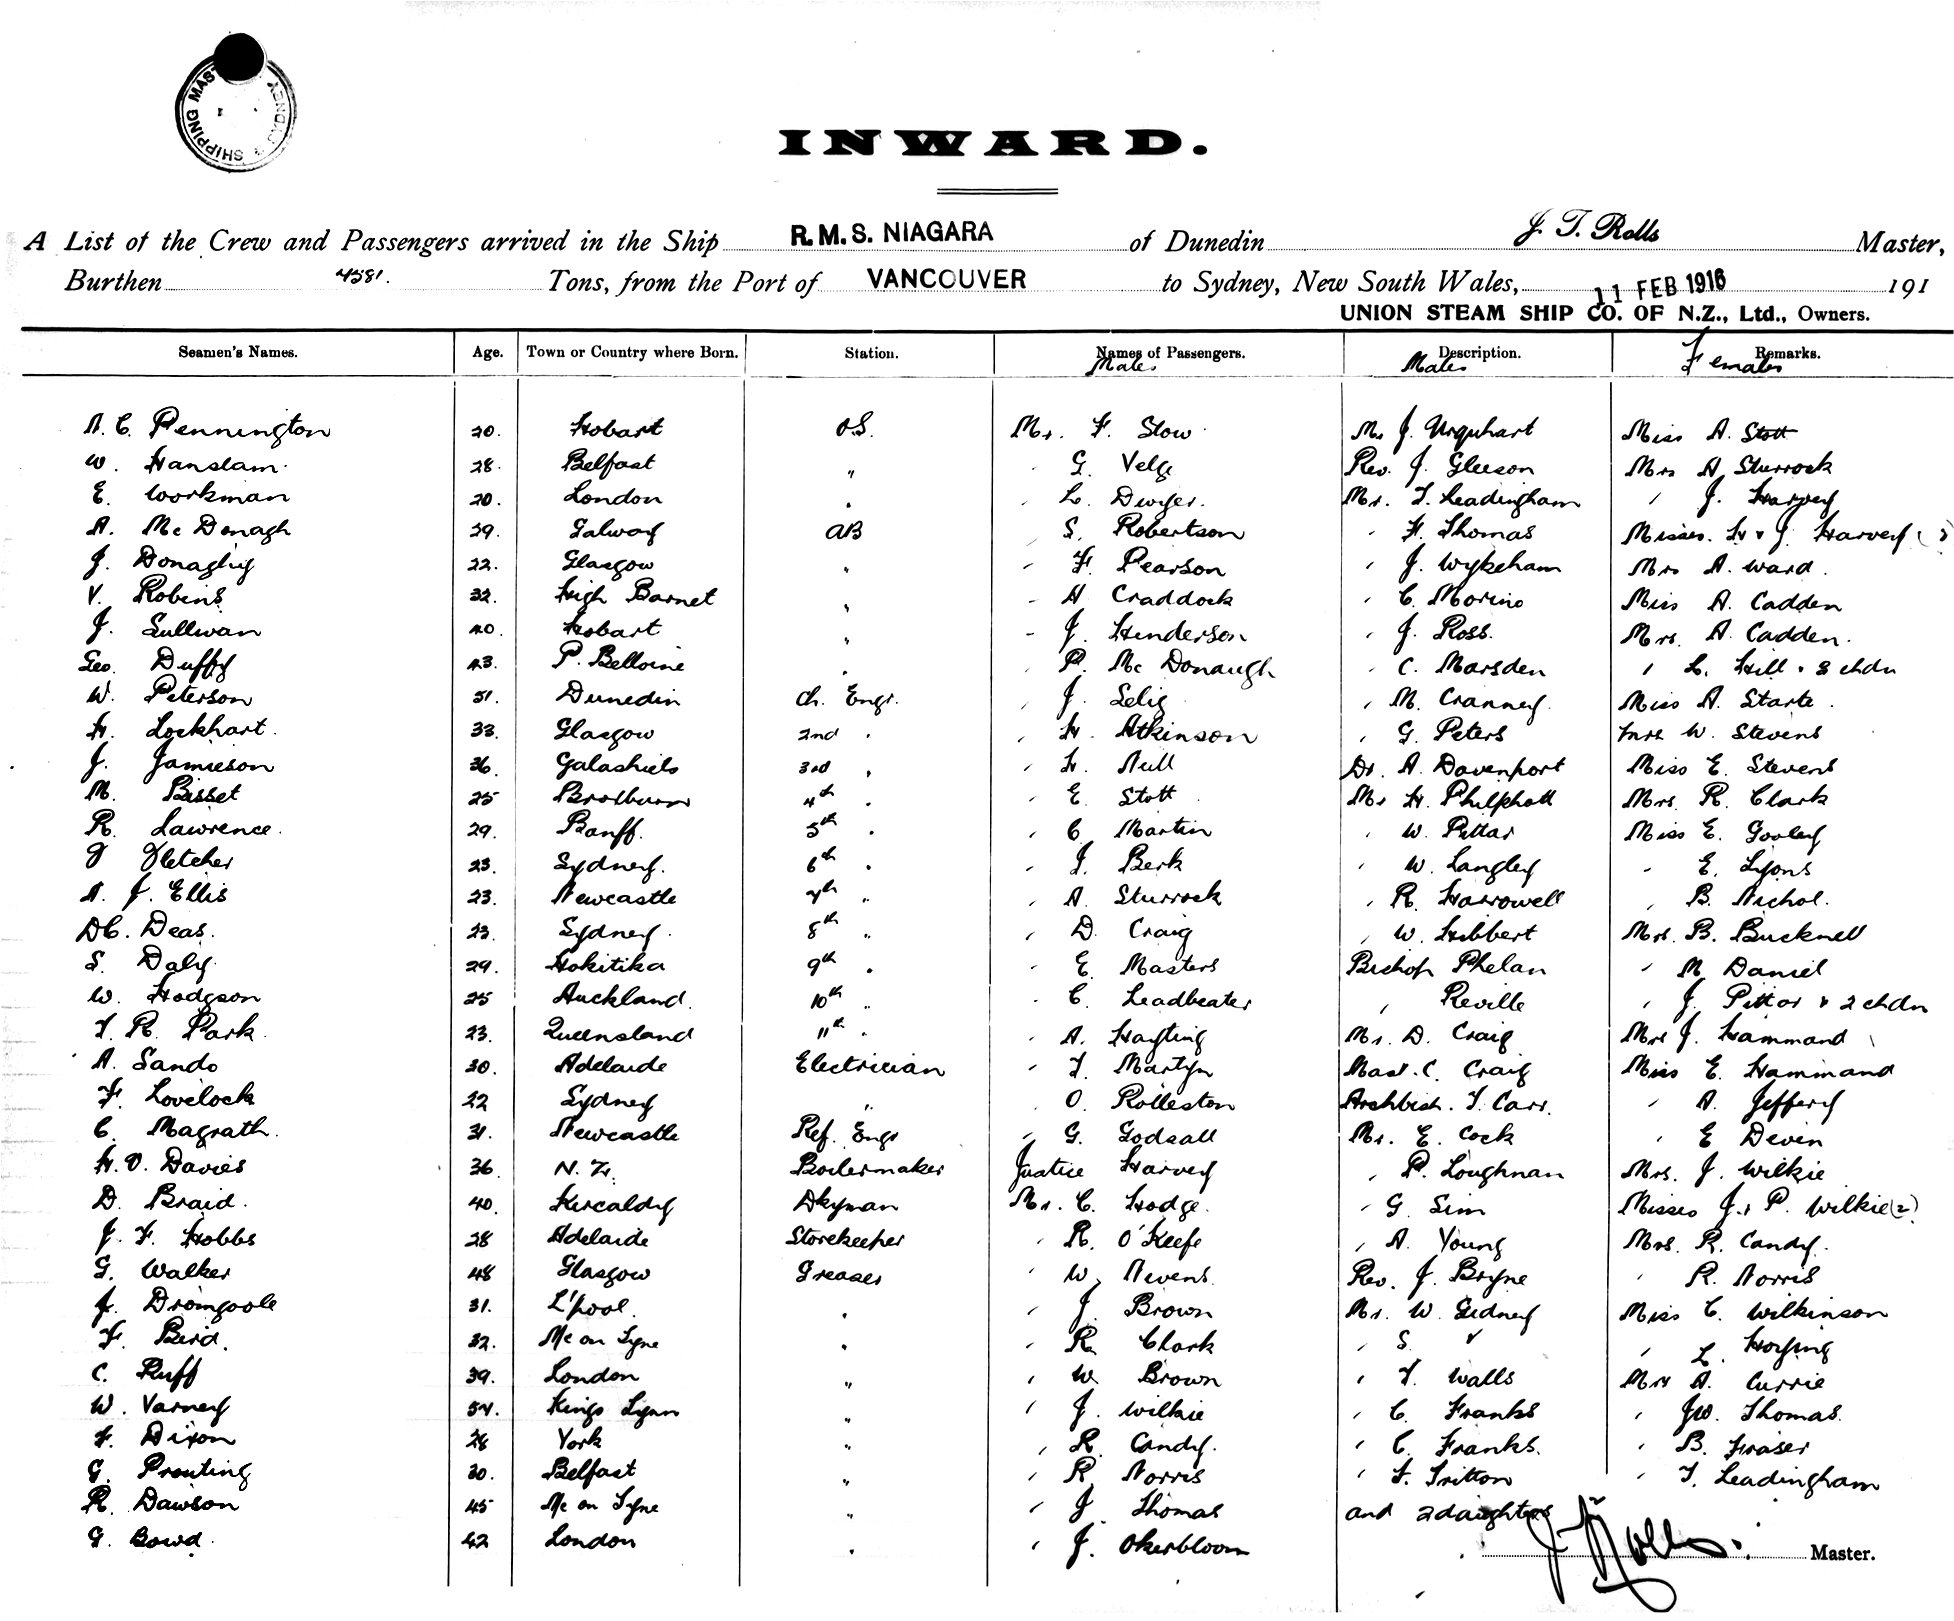 SHIPPING MAST SYDNEY
INWARD.
A List of the Crew and Passengers arrived in the Ship R.M.S. NIAGARA of Dunedin J. T. Rolls Master,
Burthen 4581. Tons, from the Port of VANCOUVER to Sydney, New South Wales, 11 FEB 1916 191
UNION STEAM SHIP CO. OF N.Z., Ltd., Owners.
Seamen's Names. Age. Town or Country where Born. Station. Names of Passengers. Description. Remarks.
Males Males Females
A. C. Pennington 20. Hobart O.S. Mr. F. Slow Mr J. Urquhart Miss A. Stott
W. Hanslam 28. Belfast " G. Velge Rev. J. Gleeson Mrs A Sturrock
E. Workman 20. London " L. Dwyer. Mr. T. Leadingham " J. Harvey
A. Mc Donagh 29. Galway AB S. Robertson " H. Thomas Misses. H & J. Harvey
J. Donaghy 22. Glasgow " F. Pearson " J. Wykeham Mrs A. Ward.
V. Robins 32. High Barnet " A Craddock " C. Morino Miss A. Cadden
J. Sullivan 40. Hobart " J. Henderson " J. Ross. Mrs. A. Cadden.
Geo. Duffy 43. P. Belloine " P. Mc Donaugh " C. Marsden " L. Hill & 3 chdn
W. Peterson 51. Dunedin Ch. Engr. " J. Selig " M. Cranney Miss A. Starte.
H. Lockhart. 33. Glasgow 2nd " " H. Atkinson " G. Peters Mrs W. Stevens
J. Jamieson 36. Galashiels 3rd " " H. Neill Dr. A. Davenport Miss E. Stevens
M. Bisset 25 Broxburn 4th " " E Stott Mr H. Philphott Mrs. R. Clark
R. Lawrence. 29. Banff. 5th " " C Martin " W. Pittar Miss E. Gooley
J Fletcher 23. Sydney. 6th " " J. Berk " W. Langley " E. Lyons
A. J. Ellis 23. Newcastle 7th " " A. Sturrock " R. Harrowell " B. Nichol.
D.C. Deas. 23. Sydney. 8th " " D. Craig " W. Hibbert Mrs. B. Bucknell
S. Daly. 29. Hokitika 9th " " E Masters Bishop Phelan " M. Daniel
W. Hodgson 25 Auckland. 10th " " C. Leadbeater " Reville " J. Pittar & 2 chdn
T. R. Park. 23. Queensland 11th " " A. Hayting Mr. D. Craig Mrs J. Hammond
A. Sando 30. Adelaide Electrician " T. Martyn Mast. C. Craig Miss E. Hammond
F. Lovelock 22 Sydney " " O. Rolleston Archbish. T. Carr. " A. Jeffery
C. Magrath. 31. Newcastle Ref. Engr " G. Godsall Mr. E. Cock " E Deven
H. O. Davies 36. N. Z. Boilermaker Justice Harvey " P. Loughnan Mrs. J. Wilkie
D. Braid. 40. Kircaldy Dkyman Mr. C. Hodge. " G. Sim Misses J. & P. Wilkie (2)
J. F. Hobbs 28 Adelaide Storekeeper " R. O'Keefe " A. Young Mrs. R. Candy.
G. Walker 48 Glasgow Greaser " W. Nevens. Rev. J. Bryne " R. Norris
J. Dromgoole 31. L'pool. " " J. Brown Mr. W. Gidney Miss C. Wilkinson
F. Bird. 32. Nc on Tyne " " R. Clark " S. " " L. Hoyling
C. Ruff 39. London " " W. Brown " T. Walls Mrs A. Currie
W. Varney 54. Kings Lynn " " J. Wilkie " C. Franks " J.W. Thomas.
F. Dixon 28 York " " R. Candy. " C. Franks. " B. Fraser
G. Prouting 30. Belfast " " R. Norris " F. Tritton " T. Leadingham
R. Dawson 45 Nc on Tyne " " J. Thomas and 2 daughters
G. Bowd. 42 London " " J. Okerbloom J T Rolls. Master.